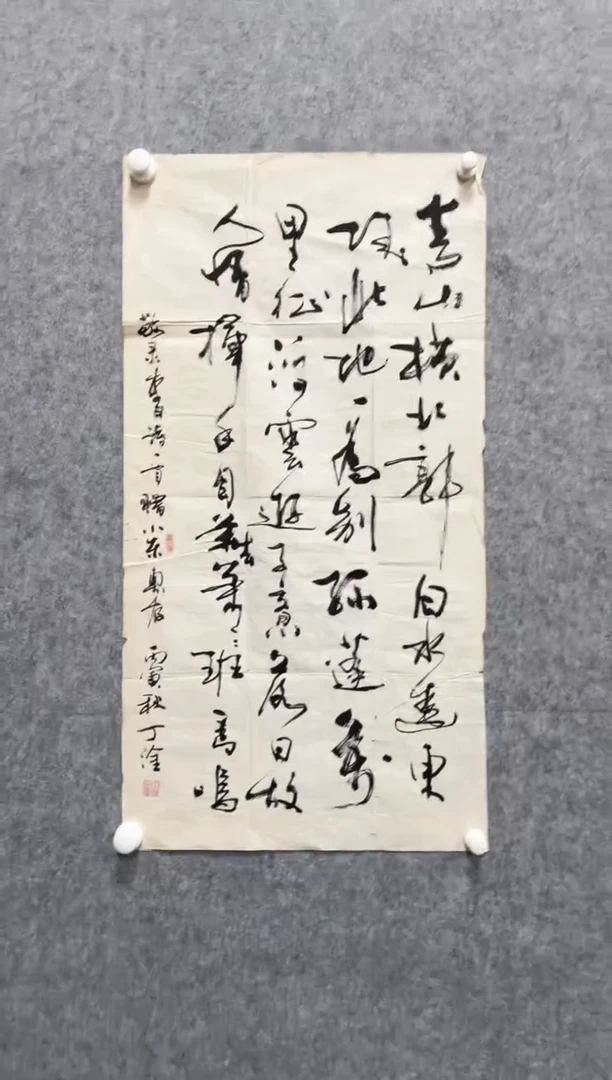 青山横北郭白水遶東
城此地一為別孤蓬萬
里征浮雲遊子意落日故
人情揮手自茲去蕭々班馬鳴
敬录李白詩一首贈小东 丙寅秋丁淦